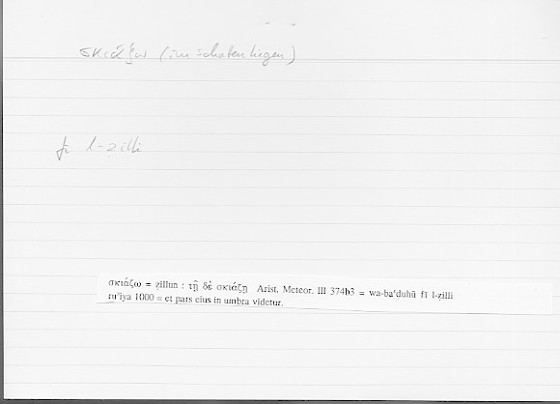 σκιάζω (im schaten liegen)
fi l-zilli
σκιάζω = ẓillun : τῇ δὲ σκιάζῃ Arist. Meteor. III 374b3 = wa-baʿḍuhū fī l-ẓilli
ruʾiya 1000 = et pars eius in umbra videtur.